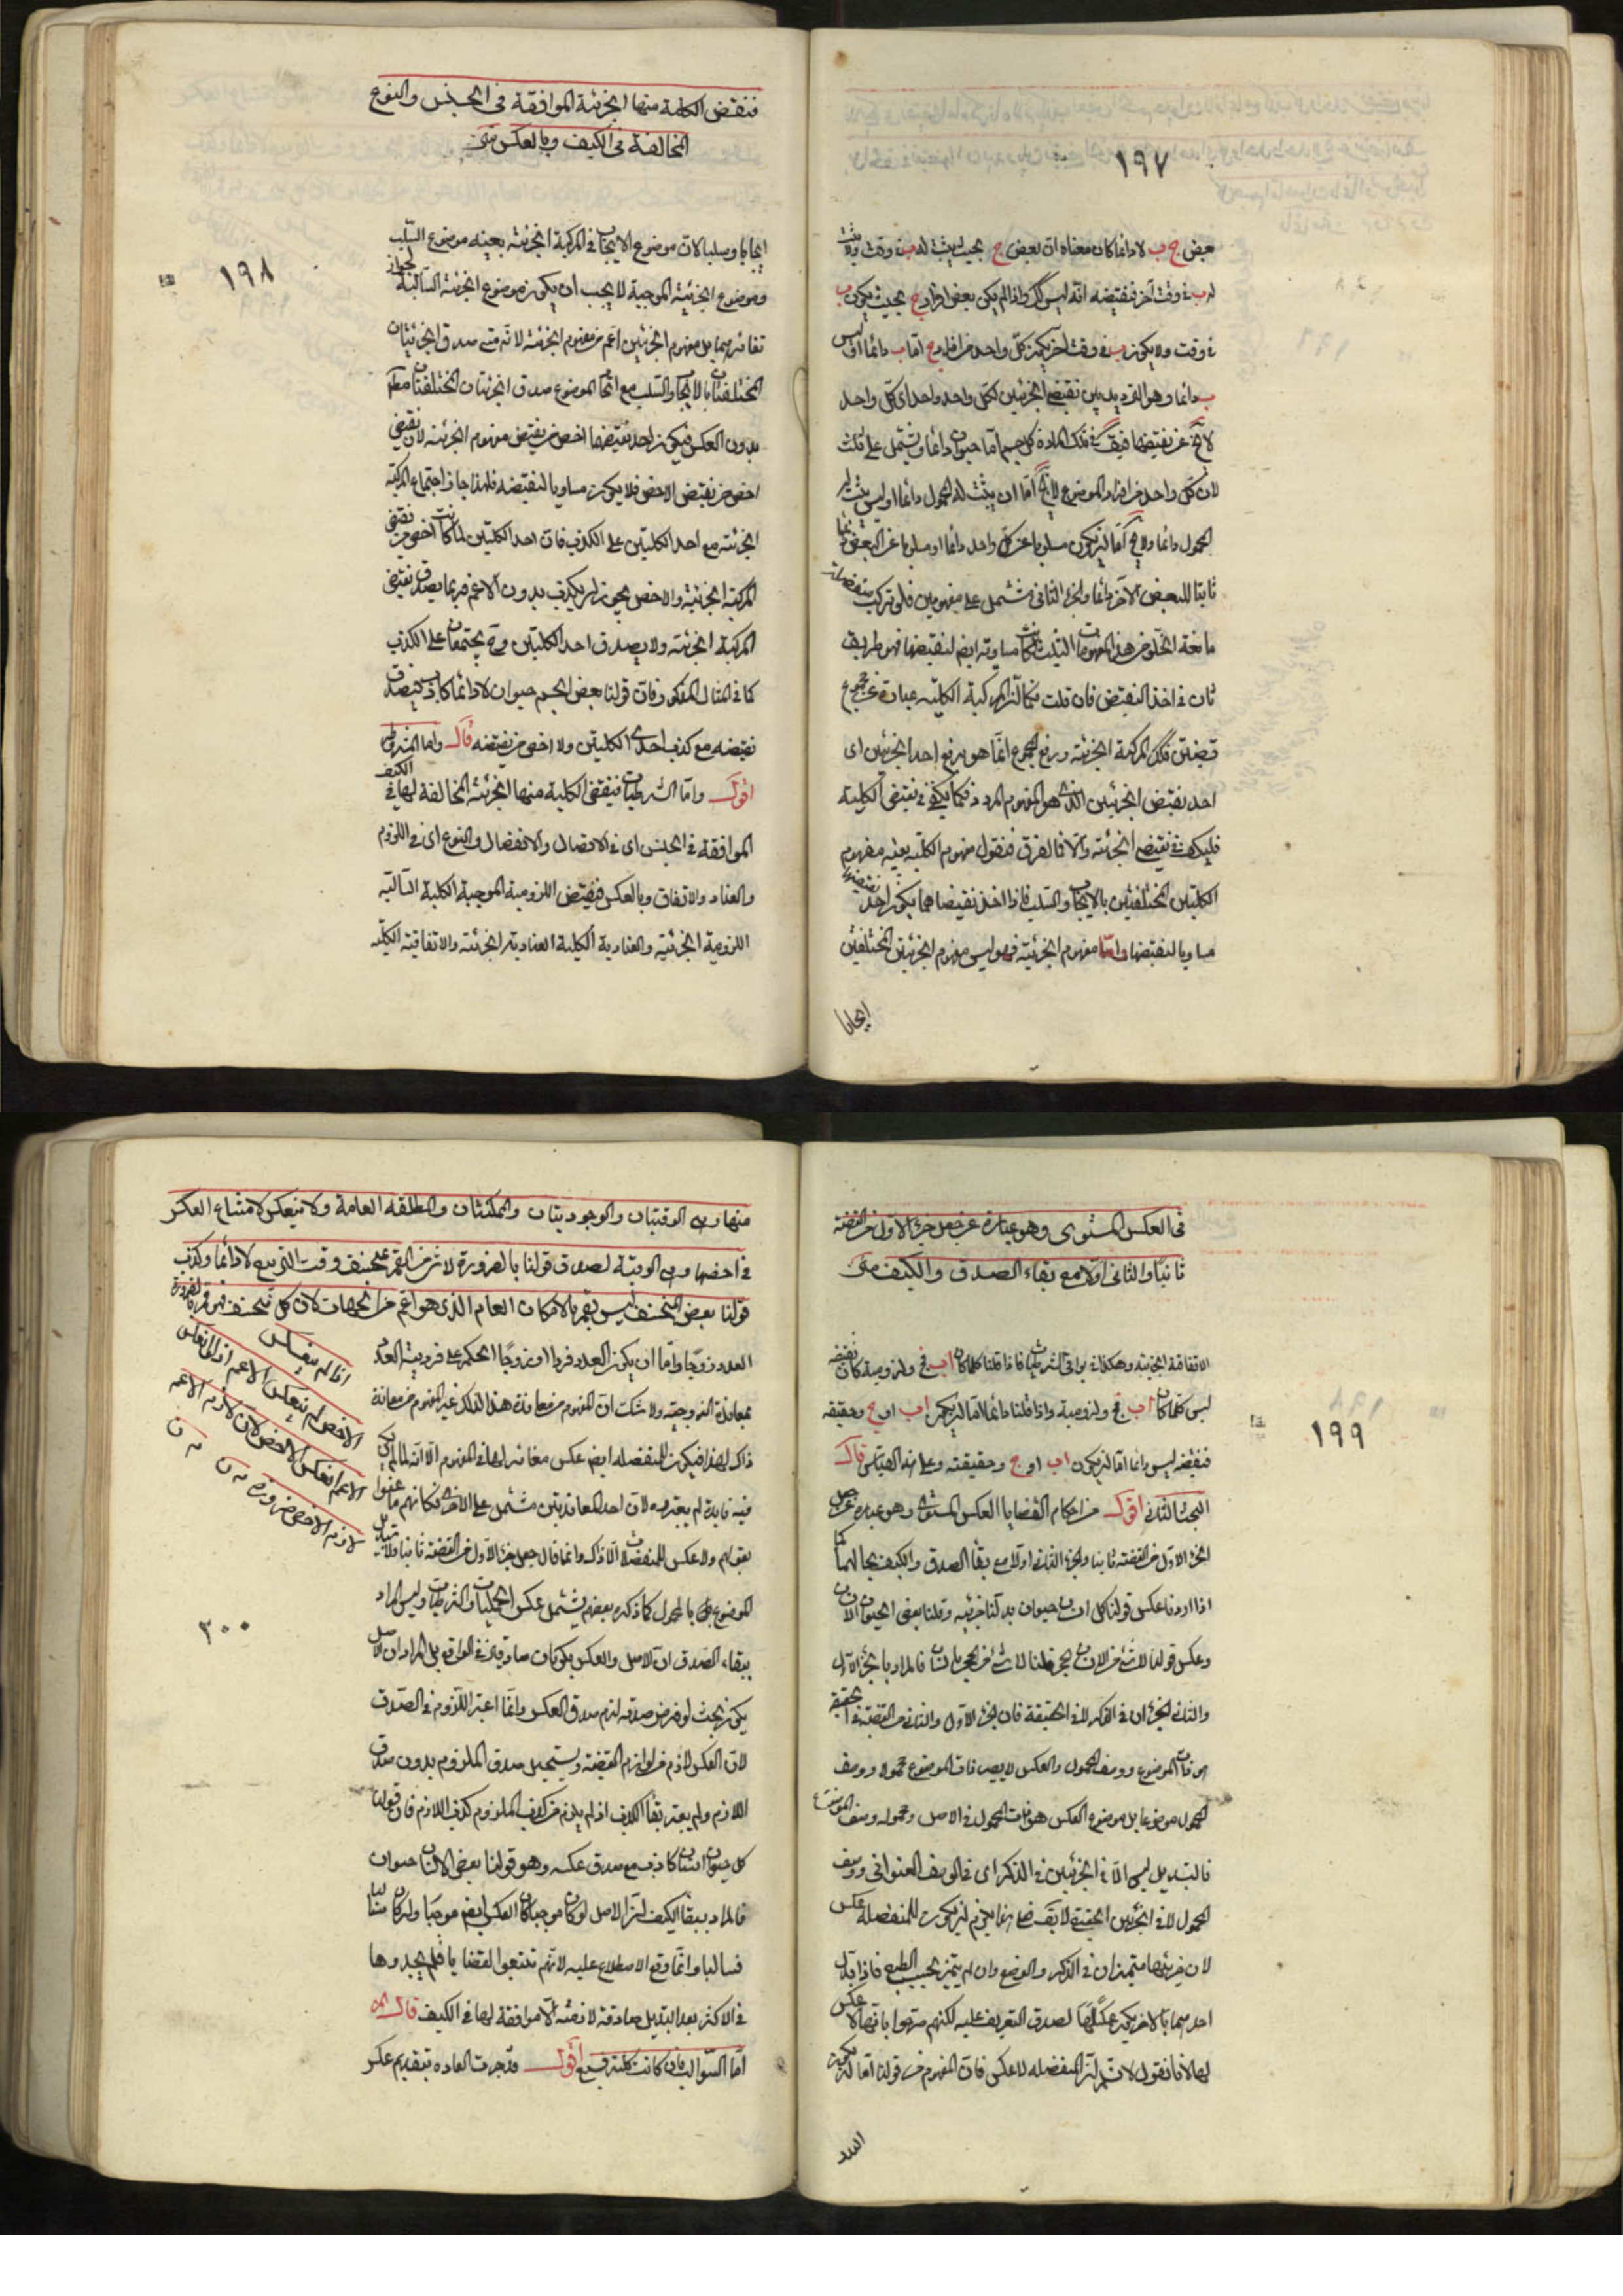 ١٩٧
بعض ج ب لا دائما كان معناه ان بعض ج بحيث يثبت له ب في وقت ولا يثبت
له ب في وقت آخر فنقيضه انه ليس كذلك واذا لم يكن بعض افراد ج بحيث يكون ب
في وقت ولا يكون ب في وقت آخر يكون كل واحد من افراد ج اما ب دائما او ليس
ب دائما وهو الترديد بين نقيضي الجزئين لكل واحد واحد اى كل واحد
لا يخ عن نقيضها فيق في تلك المادة كل جسم اما حيوان دائما ويشتمل على ثلث
لان كل واحد من افراد الموضوع لا يخ اما ان يثبت له المحمول دائما او ليس يثبت له
المحمول دائما ولا يخ اما ان يكون مسلوبا عن كل واحد دائما او مسلوبا عن البعض دائما
ثابتا للبعض الآخر دائما والجزء الثاني مشتمل على مفهومين فلو تركب منفصلة
مانعة الخلو من هذه المفهومات الثلث لكانت مساوية ايضا لنقيضها فهو طريق
ثان في اخذ النقيض فان قلت كما ان المركبة الكلية عبارة عن مجموع
قضيتين فكذا المركبة الجزئية ورفع المجموع انما هو برفع احد الجزئين اى
احد نقيضي الجزئين الذي هو المفهوم المردد فكما يكفي في نقيض الكلية
فليكف في نقيض الجزئية والا فما الفرق فنقول مفهوم الكلية بعينه مفهوم
الكليتين المختلفتين بالايجاب والسلب فاذا اخذ نقيضاهما يكون احد نقيضيهما
مساويا لنقيضها واما مفهوم الجزئية فهو ليس مفهوم الجزئيتين المختلفتين
ايجابا
فنقيض الكلية منها الجزئية الموافقة في الجنس والنوع
المخالفة في الكيف وبالعكس متن
١٩٨
ايجابا وسلبا لان موضوع الايجاب في المركبة الجزئية بعينه موضوع السلب
وموضوع الجزئية الموجبة لا يجب ان يكون موضوع الجزئية السالبة لجواز
تغايرهما بل مفهوم الجزئيتين اعم من مفهوم الجزئية لانه متى صدق الجزئيتان
المختلفتان بالايجاب والسلب مع اتحاد الموضوع صدق الجزئيتان المختلفتان مطلقا
بدون العكس فيكون احد نقيضيهما اخص من نقيض مفهوم الجزئية لان نقيض
اخص من نقيض الاخص فلا يكون مساويا لنقيضه فلهذا جاز اجتماع المركبة
الجزئية مع احد الكليتين على الكذب فان احد الكليتين لما كانت اخص من نقيض
المركبة الجزئية والاخص يجوز ان يكذب بدون الاعم فربما يصدق نقيض
المركبة الجزئية ولا يصدق احد الكليتين وح يجتمعان على الكذب
كما في المثال المذكور فان قولنا بعض الجسم حيوان لا دائما كاذب فيصدق
نقيضه مع كذب احدى الكليتين ولا اخص من نقيضه قال واما الشرطية
اقول واما الشرطيات فنقيض الكلية منها الجزئية المخالفة لها في الكيف
الموافقة في الجنس اى في الاتصال والانفصال والنوع اى في اللزوم
والعناد والاتفاق وبالعكس فنقيض اللزومية الموجبة الكلية السالبة
اللزومية الجزئية والعنادية الكلية العنادية الجزئية والاتفاقية الكلية
في العكس المستوى وهو عبارة عن جعل جزء الاول من القضية
ثانيا والثاني اولا مع بقاء الصدق والكيف متن
١٩٩
الاتفاقية الجزئية وهكذا في بواقي الشرطيات فاذا قلنا كلما كان اب فج د لزومية كان نقيضه
ليس كلما كان اب فج د لزومية واذا قلنا دائما اما ان يكون اب او ج د حقيقية
فنقيضه ليس دائما اما ان يكون اب او ج د حقيقية وعلى هذا القياس قال
البحث الثاني اقول من احكام القضايا العكس المستوى وهو عبارة عن جعل
الجزء الاول من القضية ثانيا والجزء الثاني اولا مع بقاء الصدق والكيف بحالهما كما
اذا اردنا عكس قولنا كل انسان حيوان بدلنا جزئيه وقلنا بعض الحيوان الانسان
وعكس قولنا لا شئ من الانسان بحجر قلنا لا شئ من الحجر بانسان فالمراد بالجزء الاول
والثاني الجزءان في الذكر لا في الحقيقة فان الجزء الاول والثاني من القضية في الحقيقة
هو ذات الموضوع ووصف المحمول والعكس لا يصير ذات الموضوع محمولا ووصف
المحمول موضوعا بل موضوع العكس هو ذات المحمول في الاصل ومحموله وصف الموضوع
فالتبديل ليس الا في الجزئين في الذكر اى في الوصف العنواني ووصف
المحمول لا في الجزئين الحقيقية لا يقال فعلى هذا يلزم ان يكون للمنفصلة عكس
لان جزئيها متميزان في الذكر والوضع وان لم يتميز بحسب الطبع فاذا بدل
احدهما بالاخر يكون عكسا لها لصدق التعريف عليه لكنهم صرحوا بانها لا عكس
لها لانا نقول لا نم ان المنفصلة لا عكس فان المفهوم من قولنا اما ان يكون
العدد
منها وهى الوقتيتان والوجوديتان والممكنتان والمطلقة العامة ولا ينعكس لامتناع العكس
في اخصها وهى الوقتية لصدق قولنا بالضرورة لا شئ من القمر بمنخسف وقت التربيع لا دائما وكذب
قولنا بعض المنخسف ليس بقمر بالامكان العام الذي هو اعم من الجهات لان كل منخسف فهو قمر بالضرورة
اذا لم ينعكس
الاخص لم ينعكس الاعم اذ لو انعكس
الاعم انعكس الاخص لان لازم الاعم
لازم الاخص ضرورة
العدد زوجا واما ان يكون العدد فردا او زوجا الحكم على فردية العدد
بمعاندة الزوجية ولا شك ان المفهوم من معاندة هذا لذاك غير المفهوم من معاندة
ذاك لهذا فيكون للمنفصلة ايضا عكس مغاير لها في المفهوم الا انه لما لم يكن
فيه فايدة لم يعتبروه لان احد المعاندتين مشتمل على الاخرى فكانهم ما عنوا
بقولهم ولا عكس للمنفصلات الا ذاك وانما قال جعل جزء الاول من القضية ثانيا ولا تبديل
الموضوع بالمحمول كما ذكره بعضهم ليشتمل عكس الحمليات والشرطيات وليس المراد
٢٠٠
ببقاء الصدق ان الاصل والعكس يكونان صادقين في الواقع بل المراد ان الاصل
يكون بحيث لو فرض صدقه لزم صدق العكس وانما اعتبر اللزوم في الصدق
لان العكس لازم من لوازم القضية ويستحيل صدق الملزوم بدون صدق
اللازم ولم يعتبر بقاء الكذب اذ لم يلزم من كذب الملزوم كذب اللازم فان قولنا
كل حيوان انسان كاذب مع صدق عكسه وهو قولنا بعض الانسان حيوان
فالمراد ببقاء الكيف ان الاصل لو كان موجبا كان العكس ايضا موجبا وان كان سالبا
فسالبا وانما وقع الاصطلاح عليه لانهم تتبعوا القضايا فلم يجدوها
في الاكثر بعد التبديل صادقة لازمة الا موافقة لها في الكيف قال
اما السوالب فان كانت كلية فسبع اقول قد جرت العادة بتقديم عكس